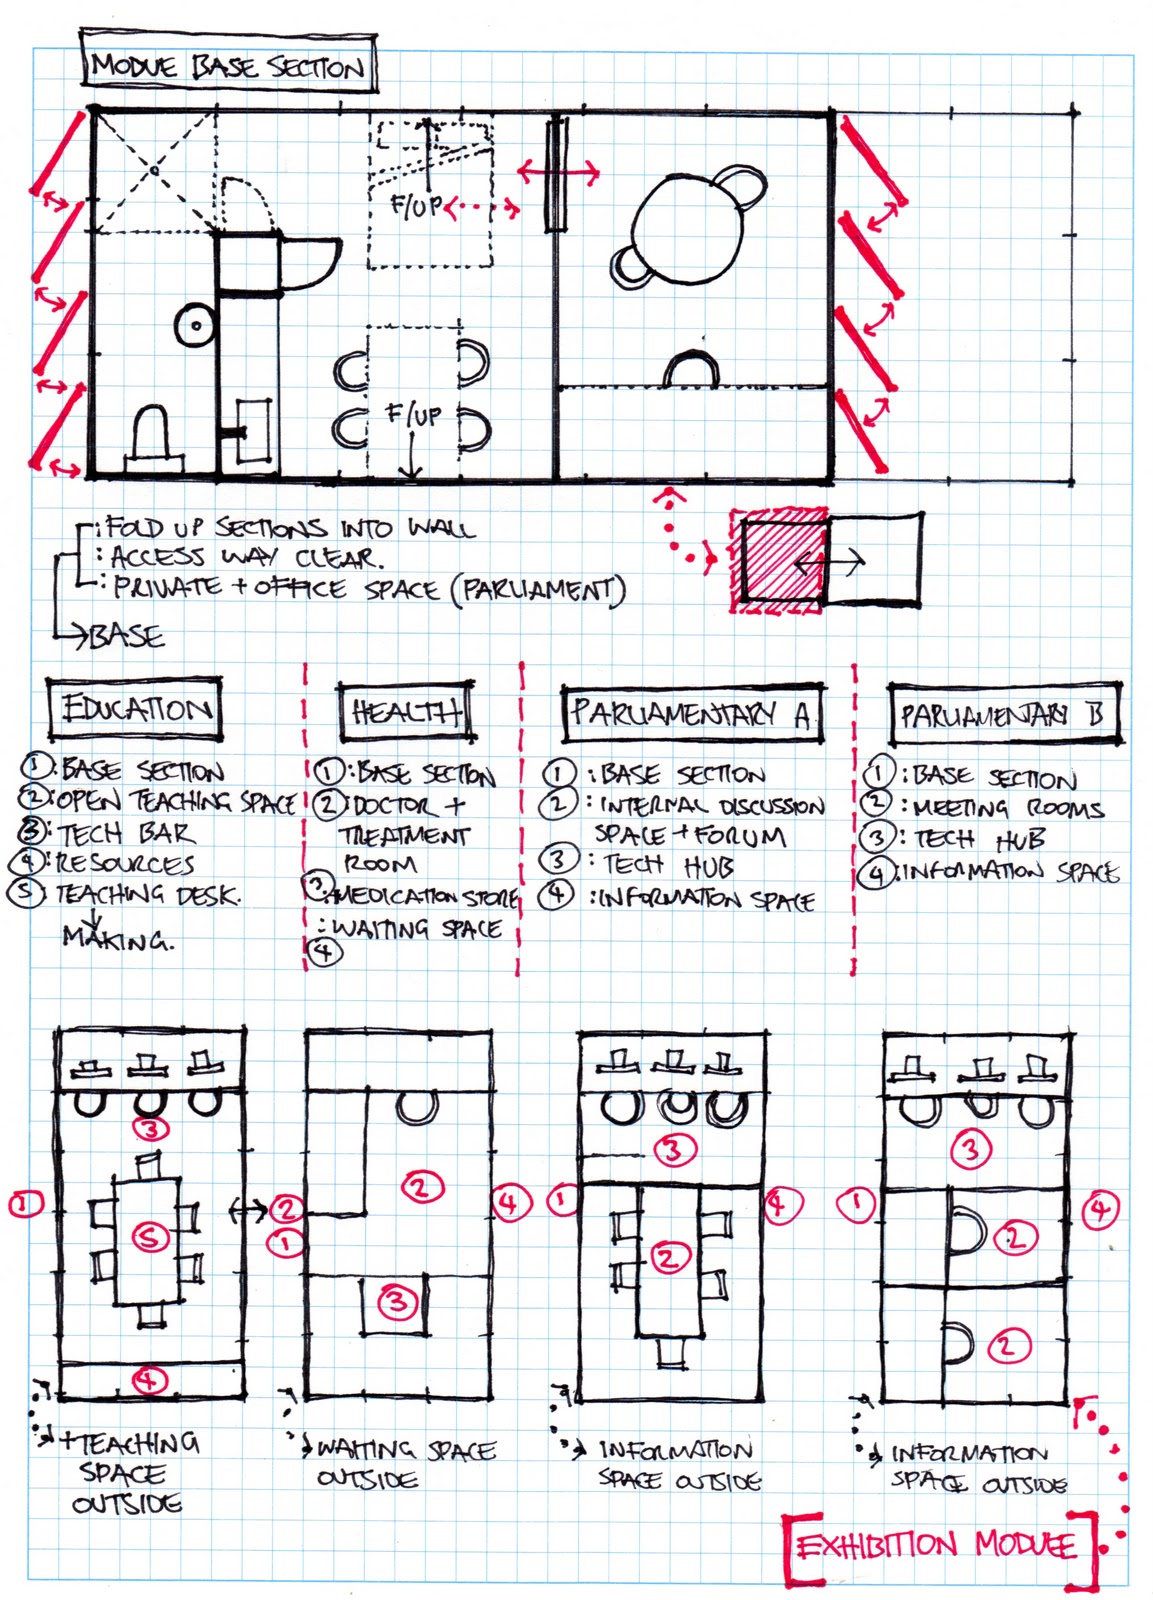 MODUE BASE SECTION
F/UP
F/UP
: FOLD UP SECTIONS INTO WALL
: ACCESS WAY CLEAR.
: PRIVATE + OFFICE SPACE (PARLIAMENT)
→BASE
EDUCATION
①: BASE SECTION
②: OPEN TEACHING SPACE
③: TECH BAR
④: RESOURCES
⑤: TEACHING DESK.
↓
MAKING.
HEALTH
①: BASE SECTION
②: DOCTOR +
TREATMENT
ROOM
③: MEDICATION STORE
: WAITING SPACE
④
PARLIAMENTARY A
① : BASE SECTION
② : INTERNAL DISCUSSION
SPACE + FORUM
③ : TECH HUB
④ : INFORMATION SPACE
PARLIAMENTARY B
① : BASE SECTION
② : MEETING ROOMS
③ : TECH HUB
④ : INFORMATION SPACE
③
①
⑤
④
②
①
②
③
④
①
③
②
④
①
③
②
②
④
+ TEACHING
SPACE
OUTSIDE
WAITING SPACE
OUTSIDE
INFORMATION
SPACE OUTSIDE
INFORMATION
SPACE OUTSIDE
[EXHIBITION MODULE]